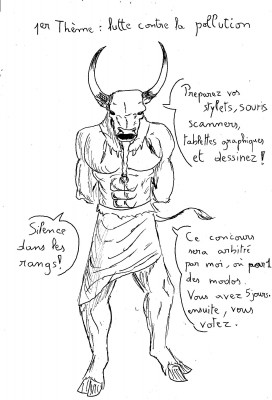 1er Thème : lutte contre la pollution
Préparez vos
stylets, souris
scanners,
tablettes graphiques
et dessinez !
Silence
dans les
rangs !
Ce concours
sera arbitré
par moi, où par 1
des modos.
Vous avez 5 jours.
ensuite, vous
votez.